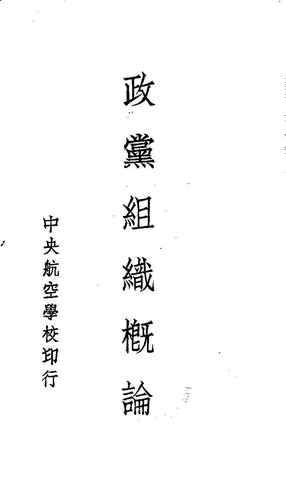 政黨組織概論
中央航空學校印行